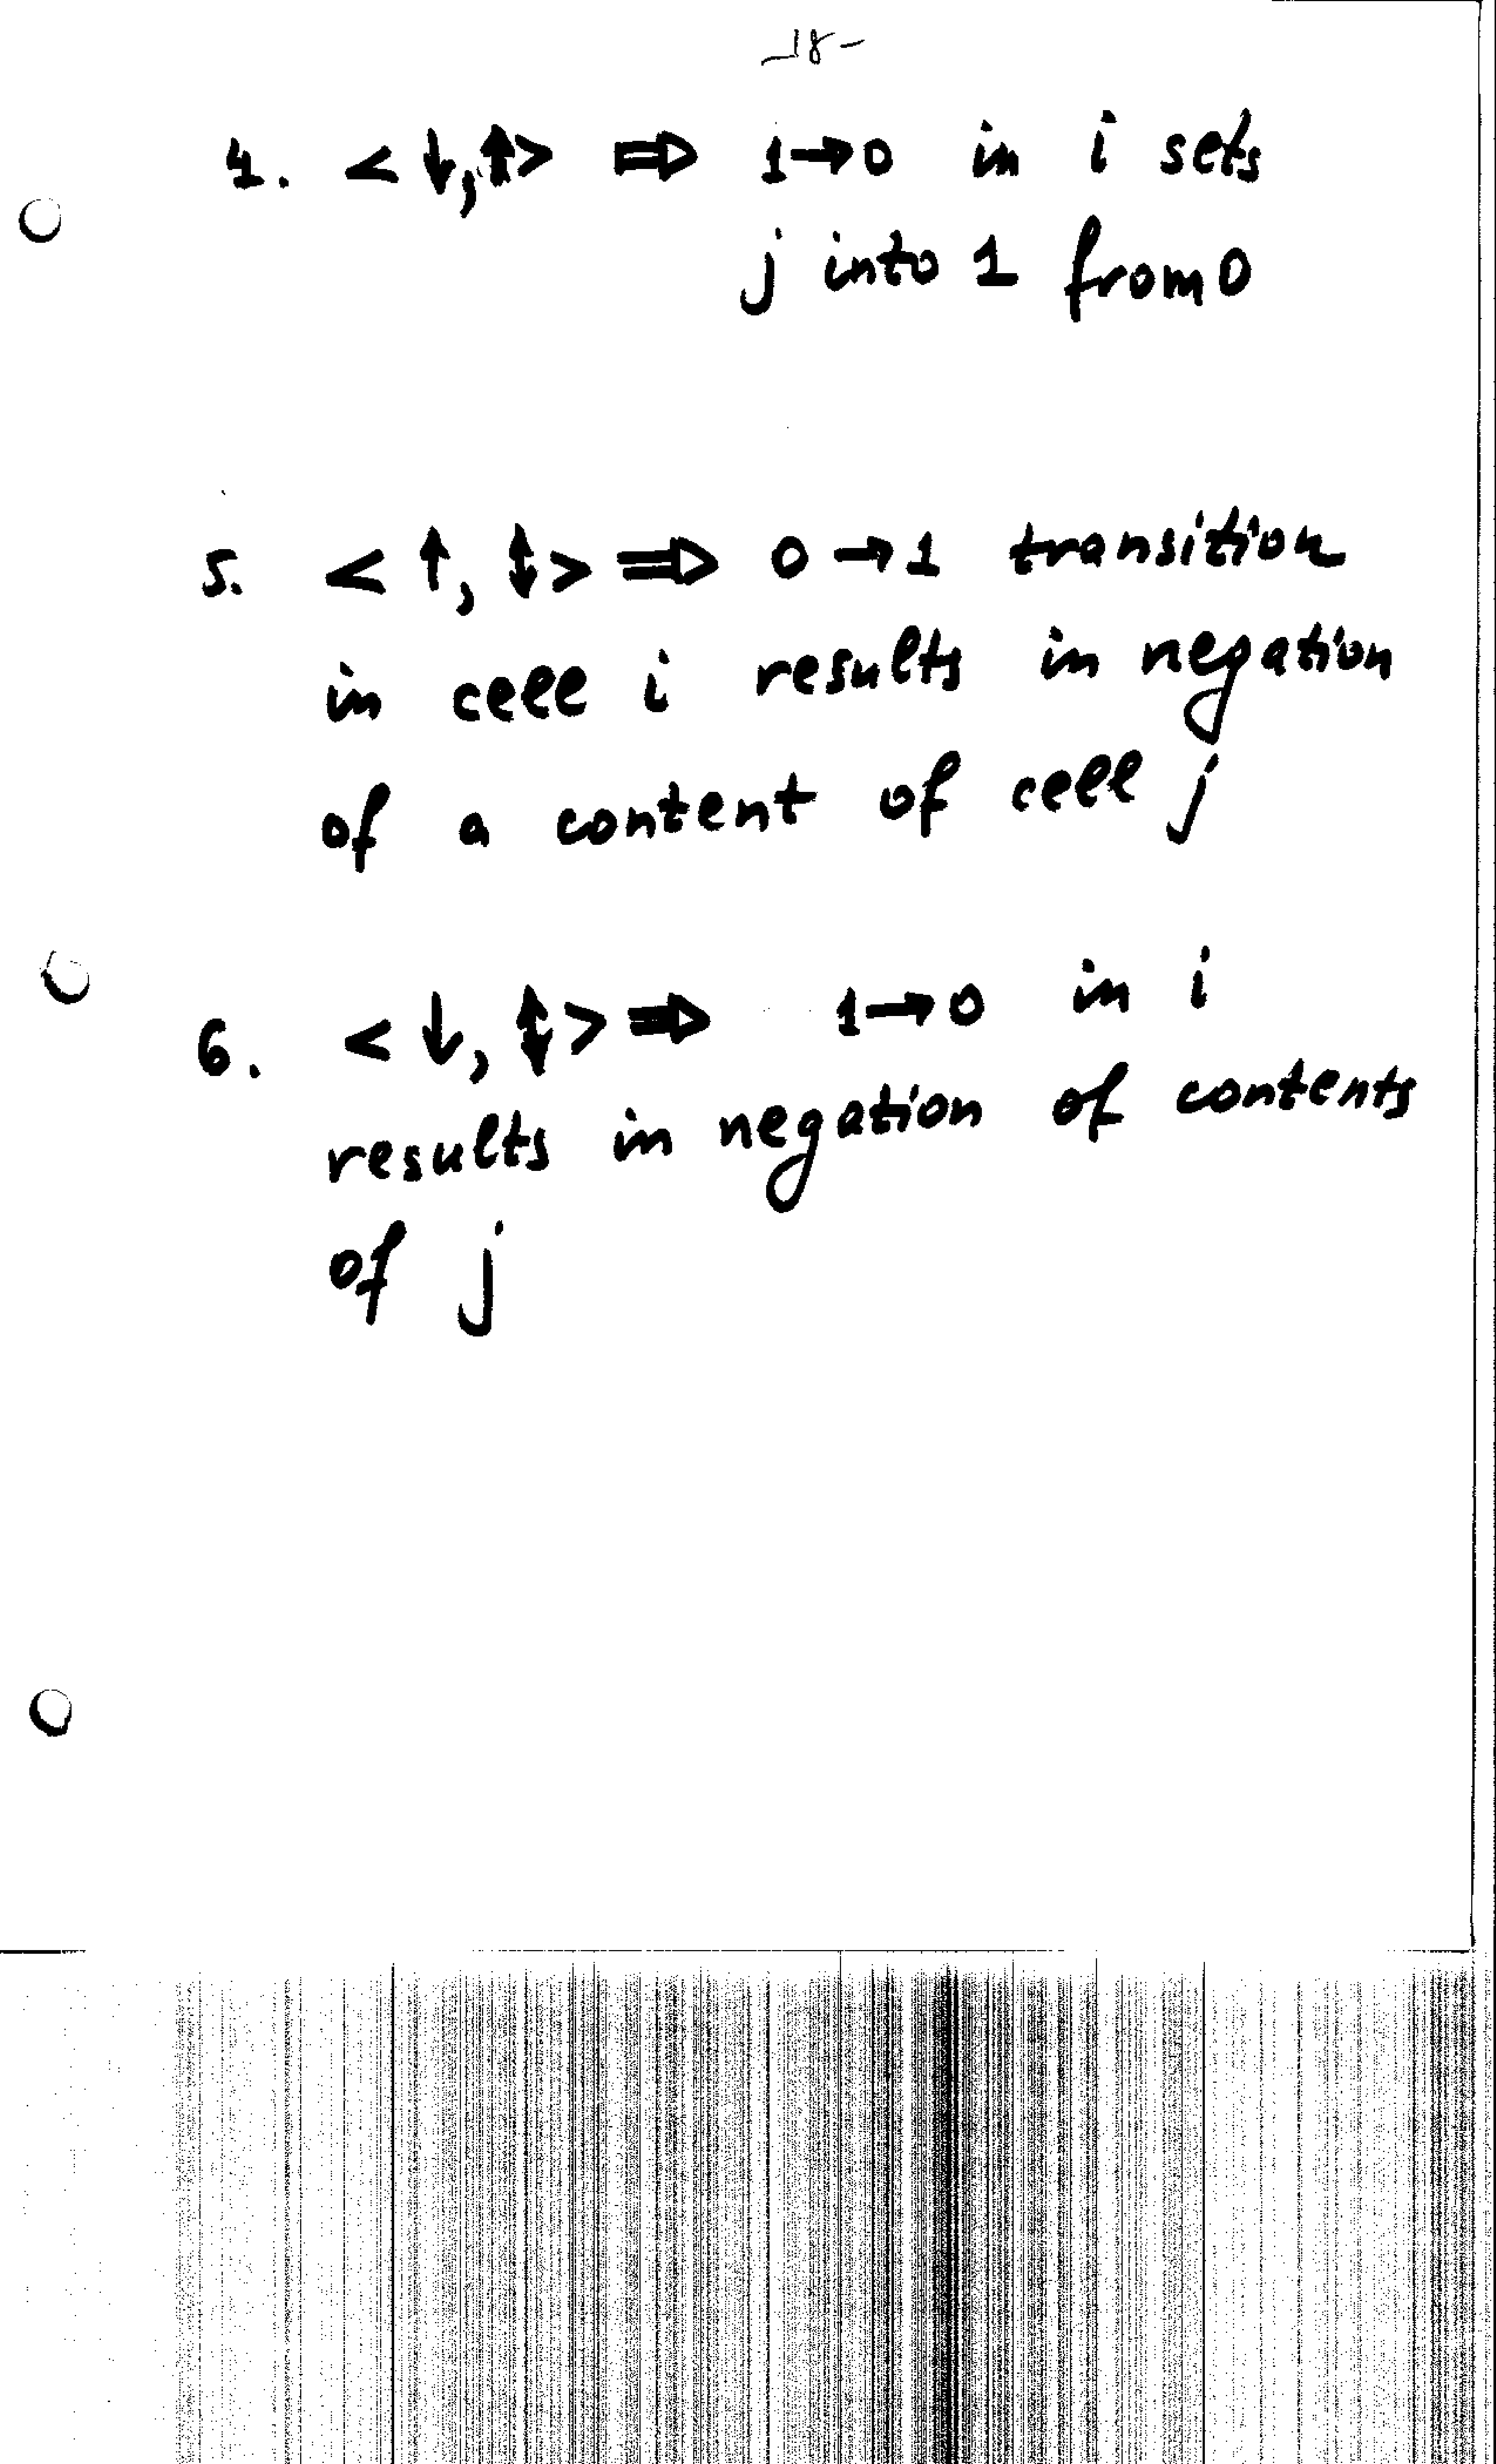 -18-
4. <↓,↑> ⇒ 1→0 in i sets
j into 1 from 0
5. <↑,↕> ⇒ 0→1 transition
in cell i results in negation
of a content of cell j
6. <↓,↕> ⇒ 1→0 in i
results in negation of contents
of j